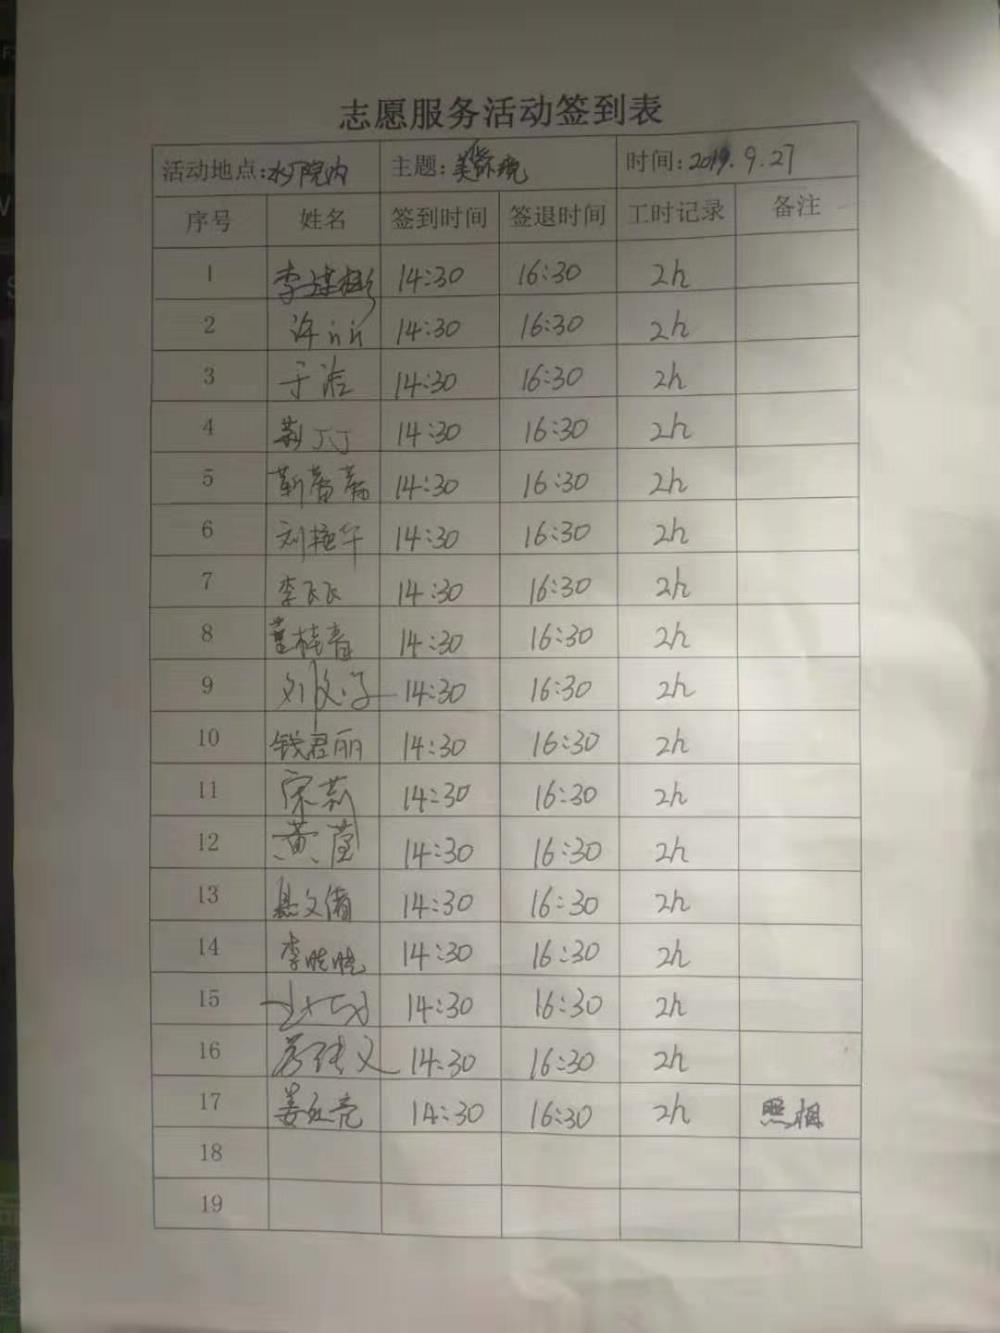 志愿服务活动签到表
活动地点:水厂院内 主题:美环境 时间:2019.9.27
序号 姓名 签到时间 签退时间 工时记录 备注
1 李建彬 14:30 16:30 2h
2 许 14:30 16:30 2h
3 于浩 14:30 16:30 2h
4 14:30 16:30 2h
5 靳 14:30 16:30 2h
6 刘艳华 14:30 16:30 2h
7 李飞飞 14:30 16:30 2h
8 董桂青 14:30 16:30 2h
9 刘 14:30 16:30 2h
10 钱君丽 14:30 16:30 2h
11 宋莉 14:30 16:30 2h
12 黄莹 14:30 16:30 2h
13 文倩 14:30 16:30 2h
14 李晓晓 14:30 16:30 2h
15 14:30 16:30 2h
16 14:30 16:30 2h
17 姜红亮 14:30 16:30 2h 照相
18
19